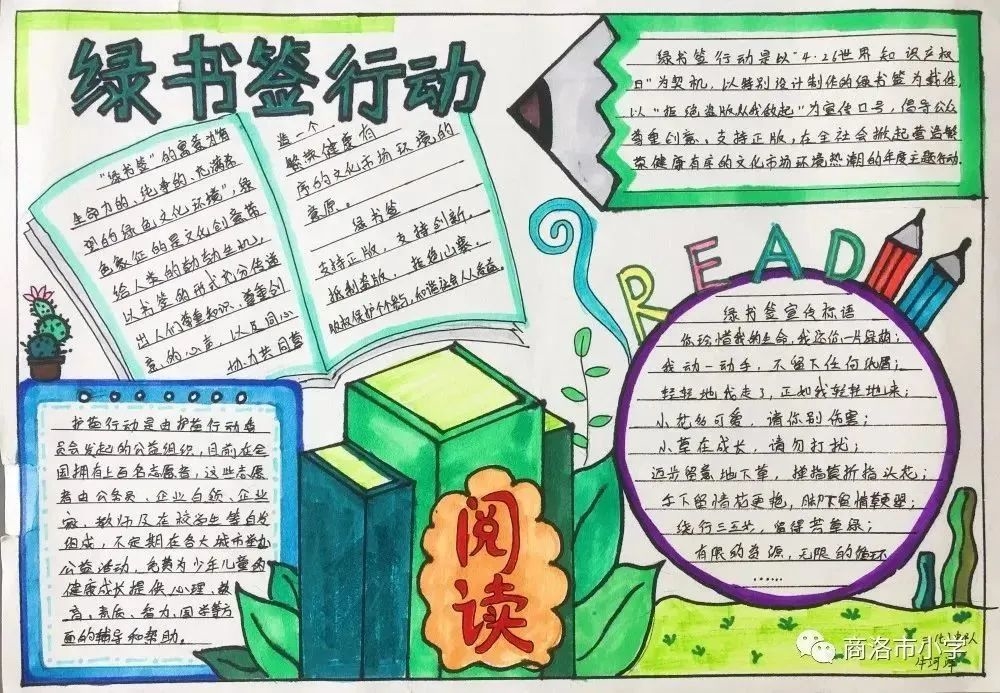 绿书签行动
"绿书签"的寓意为有
生命力的、纯净的、充满希
望的绿色文化环境",绿
色象征的是文化创意带
给人类的勃勃生机,
以书签的形式充分传递
出人们尊重知识、尊重创
意的心声,以及同心
协力共同营
造一个
繁荣健康有
序的文化市场环境的
意愿。
绿书签
支持正版,支持创新。
抵制盗版,拒绝山寨。
版权保护个个参与,和谐社会人人受益
绿书签行动是以"4·26世界知识产权
日"为契机,以特别设计制作的绿书签为载体,
以"拒绝盗版从我做起"为宣传口号,倡导公众
尊重创意、支持正版,在全社会掀起营造繁
荣健康有序的文化市场环境热潮的年度主题行动.
READ
绿书签宣传标语
你珍惜我的生命,我还你一片绿荫;
我动一动手,不留下任何纸屑;
轻轻地我走了,正如我轻轻地来;
小花多可爱,请你别伤害;
小草在成长,请勿打扰;
迈步留意地下草,挥指莫折指头花;
手下留情花更艳,脚下留情草更翠;
绕行三五步,留得芳草绿;
有限的资源,无限的循环
......
护苗行动是由护苗行动委
员会发起的公益组织,目前在全
国拥有上百名志愿者,这些志愿
者由公务员、企业白领、企业
家、教师及在校学生等自发
组成,不定期在各大城市举办
公益活动,免费为少年儿童的
健康成长提供心理、教
育、素质、智力、国学等方
面的辅导和帮助。
阅读
商洛市小学